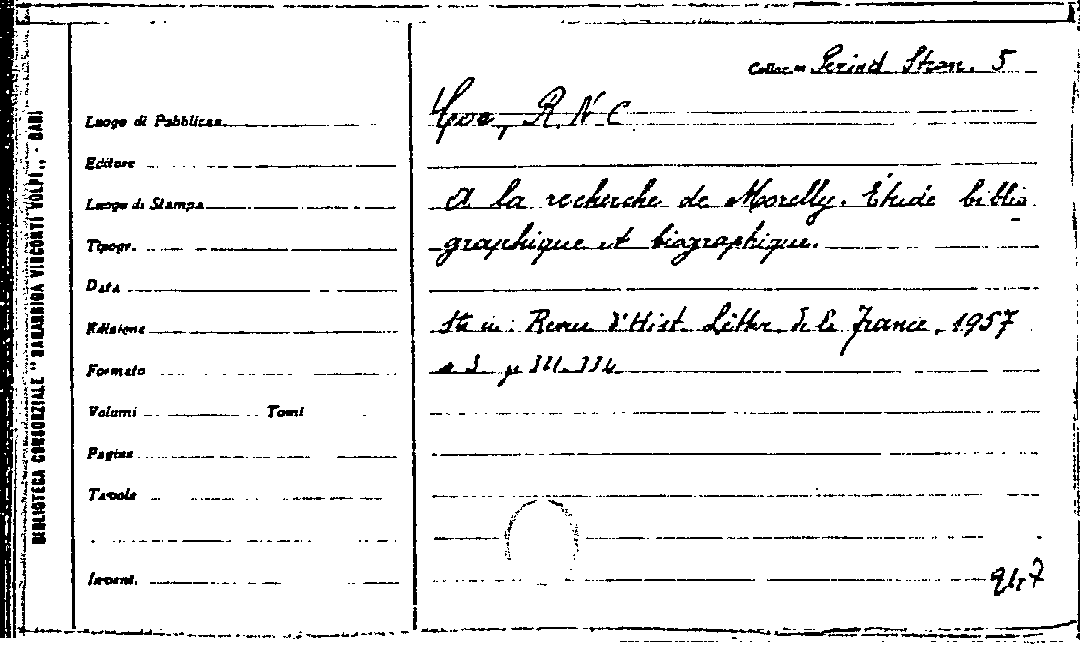 BIBLIOTECA CONSORZIALE "SAGARRIGA VISCONTI VOLPI„ - BARI
Colloc.ne Period Stran. 5
Luogo di Pubblicaz.
Coe, R. N. C.
Editore
Luogo di Stampa
A la recherche de Morelly. Étude biblio
Tipogr.
graphique et biographique.
Data
Edizione
Sta in: Revue d'Hist. Littér. de la France, 1957
Formato
n 3 p
Volumi Tomi
Pagine
Tavole
Invent.